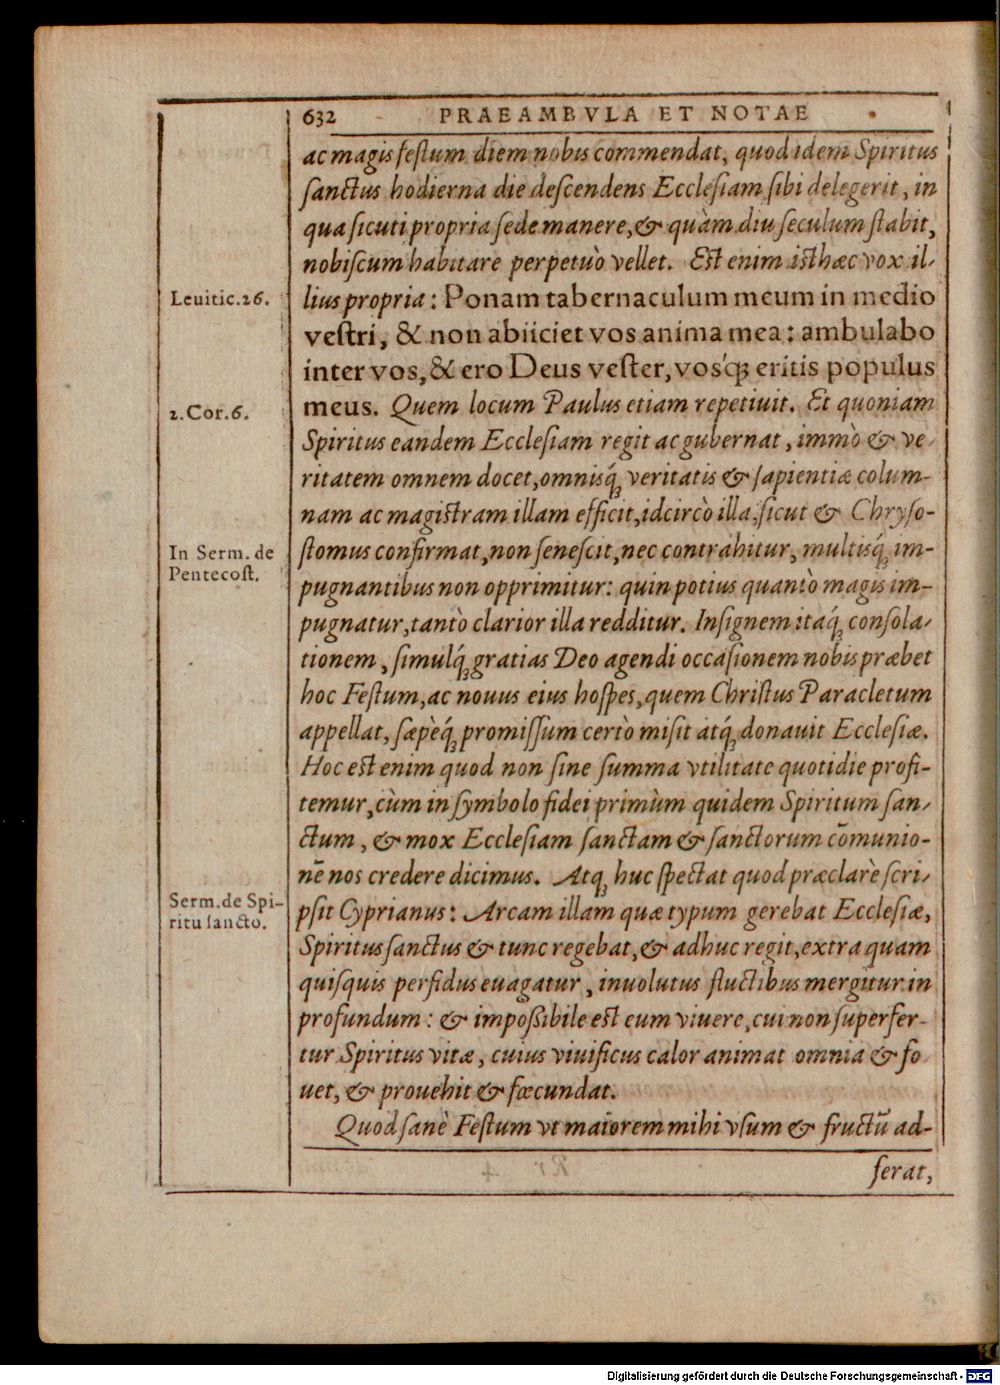 632 PRAEAMBVLA ET NOTAE
ac magis festum diem nobis commendat, quod idem Spiritus
sanctus hodierna die descendens Ecclesiam sibi delegerit, in
qua sicuti propria sede manere, & quàm diu seculum stabit,
nobiscum habitare perpetuò vellet. Est enim isthæc vox il-
Leuitic.26.
lius propria: Ponam tabernaculum meum in medio
vestri, & non abiiciet vos anima mea: ambulabo
inter vos, & ero Deus vester, vosq́; eritis populus
2.Cor.6.
meus. Quem locum Paulus etiam repetiuit. Et quoniam
Spiritus eandem Ecclesiam regit ac gubernat, immò & ve-
ritatem omnem docet, omnisq́; veritatis & sapientiæ colum-
nam ac magistram illam efficit, idcircò illa, sicut & Chryso-
In Serm. de
Pentecost.
stomus confirmat, non senescit, nec contrahitur, multisq́; im-
pugnantibus non opprimitur: quin potius quantò magis im-
pugnatur, tantò clarior illa redditur. Insignem itaq́; consola-
tionem, simulq́; gratias Deo agendi occasionem nobis præbet
hoc Festum, ac nouus eius hospes, quem Christus Paracletum
appellat, sæpèq́; promissum certò misit atq́; donauit Ecclesiæ.
Hoc est enim quod non sine summa vtilitate quotidie profi-
temur, cùm in symbolo fidei primùm quidem Spiritum san-
ctum, & mox Ecclesiam sanctam & sanctorum cōmunio-
nē nos credere dicimus. Atq; huc spectat quod præclarè scri-
Serm. de Spi-
ritu sancto.
psit Cyprianus: Arcam illam quæ typum gerebat Ecclesiæ,
Spiritus sanctus & tunc regebat, & adhuc regit, extra quam
quisquis perfidus euagatur, inuolutus fluctibus mergitur in
profundum: & impoßibile est eum viuere, cui non superfer-
tur Spiritus vitæ, cuius viuificus calor animat omnia & fo-
uet, & prouehit & fœcundat.
Quod sanè Festum vt maiorem mihi vsum & fructū ad-
ferat,
Digitalisierung gefördert durch die Deutsche Forschungsgemeinschaft - DFG